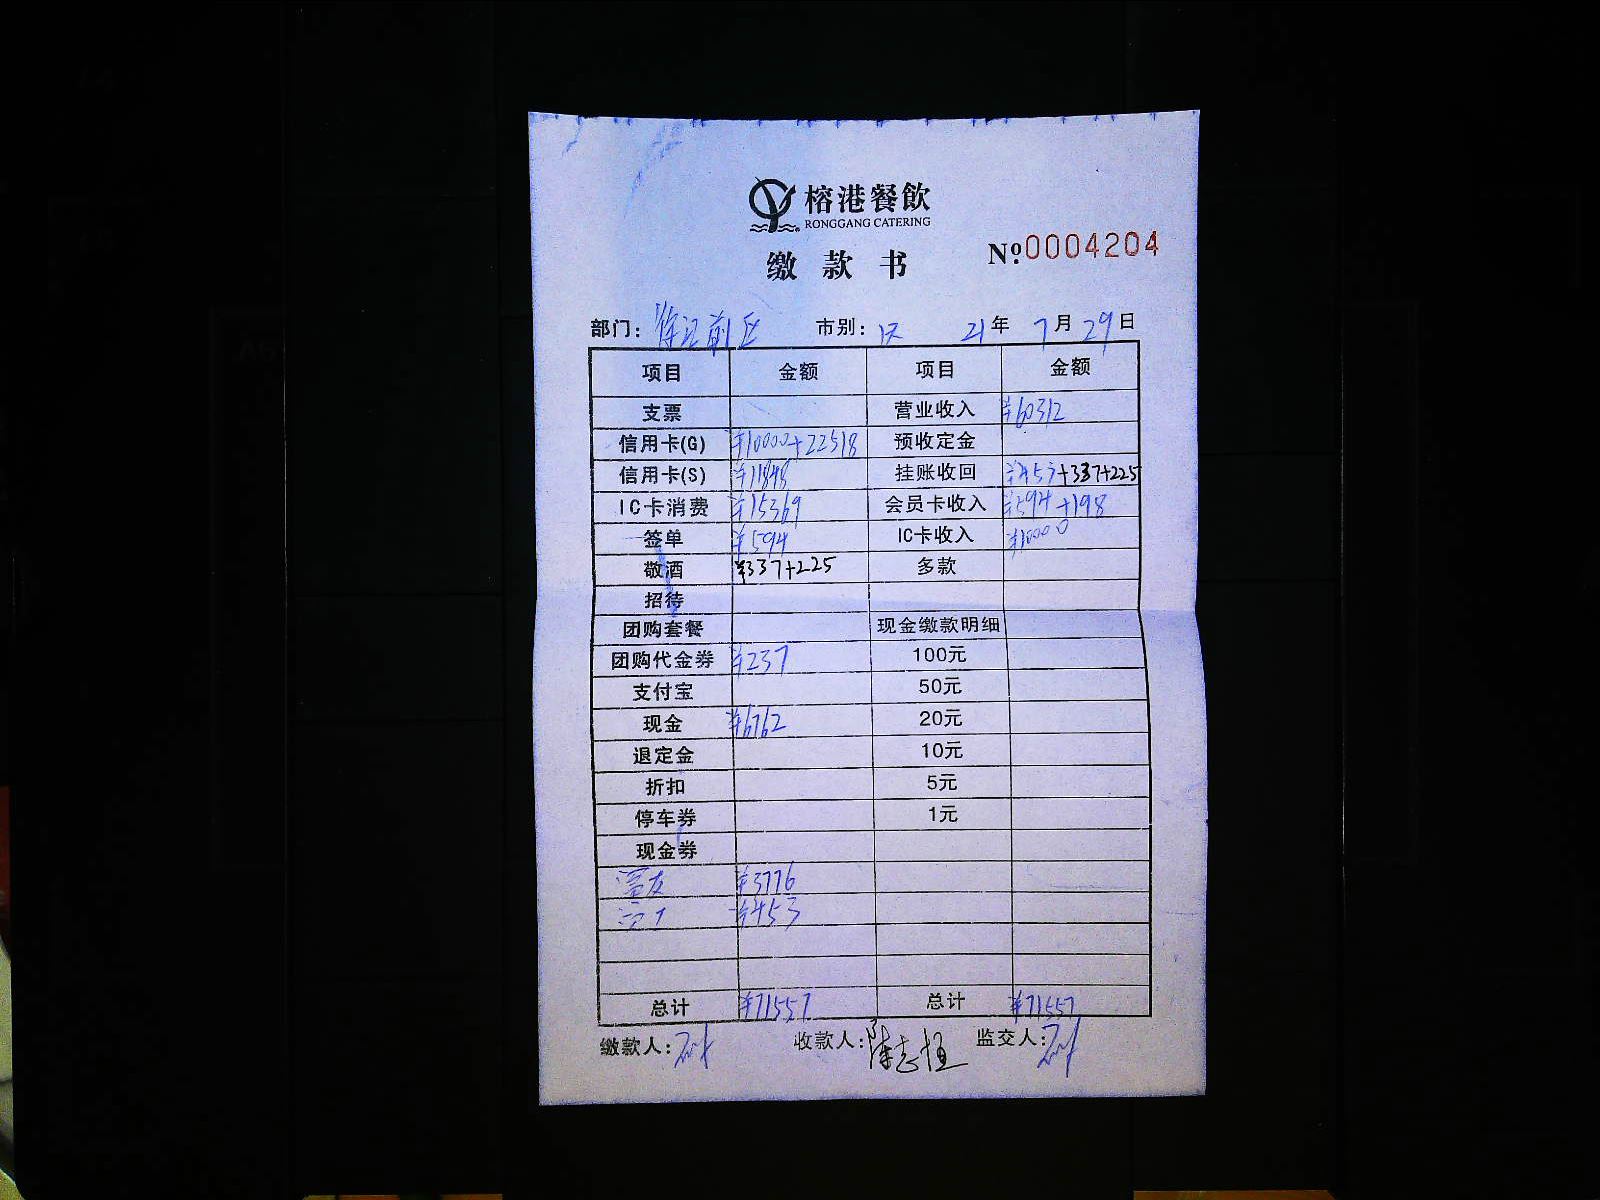 榕港餐飲
RONGGANG CATERING
缴款书
№0004204
部门: 前区 市别: 21年 7月 29日
项目 金额 项目 金额
支票 营业收入 ¥60312
信用卡(G) ¥10000+22518 预收定金
信用卡(S) ¥11848 挂账收回 ¥453+337+225
IC卡消费 ¥15369 会员卡收入 ¥594+198
签单 ¥594 IC卡收入 ¥10000
敬酒 ¥337+225 多款
招待
团购套餐 现金缴款明细
团购代金券 ¥237 100元
支付宝 50元
现金 ¥6762 20元
退定金 10元
折扣 5元
停车券 1元
现金券
¥3776
¥453
总计 ¥71557 总计 ¥71557
缴款人: 收款人: 陈志恒 监交人: